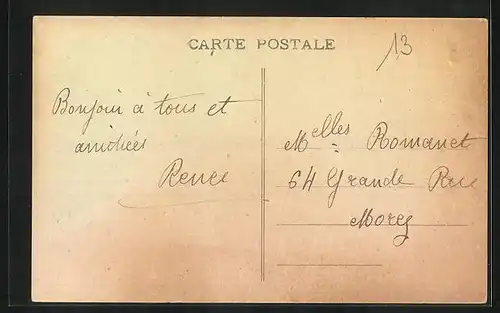 CARTE POSTALE
13
Bonjour à tous et
amitiées
Renee
Melles Romanet
64 Grande Rue
Morez